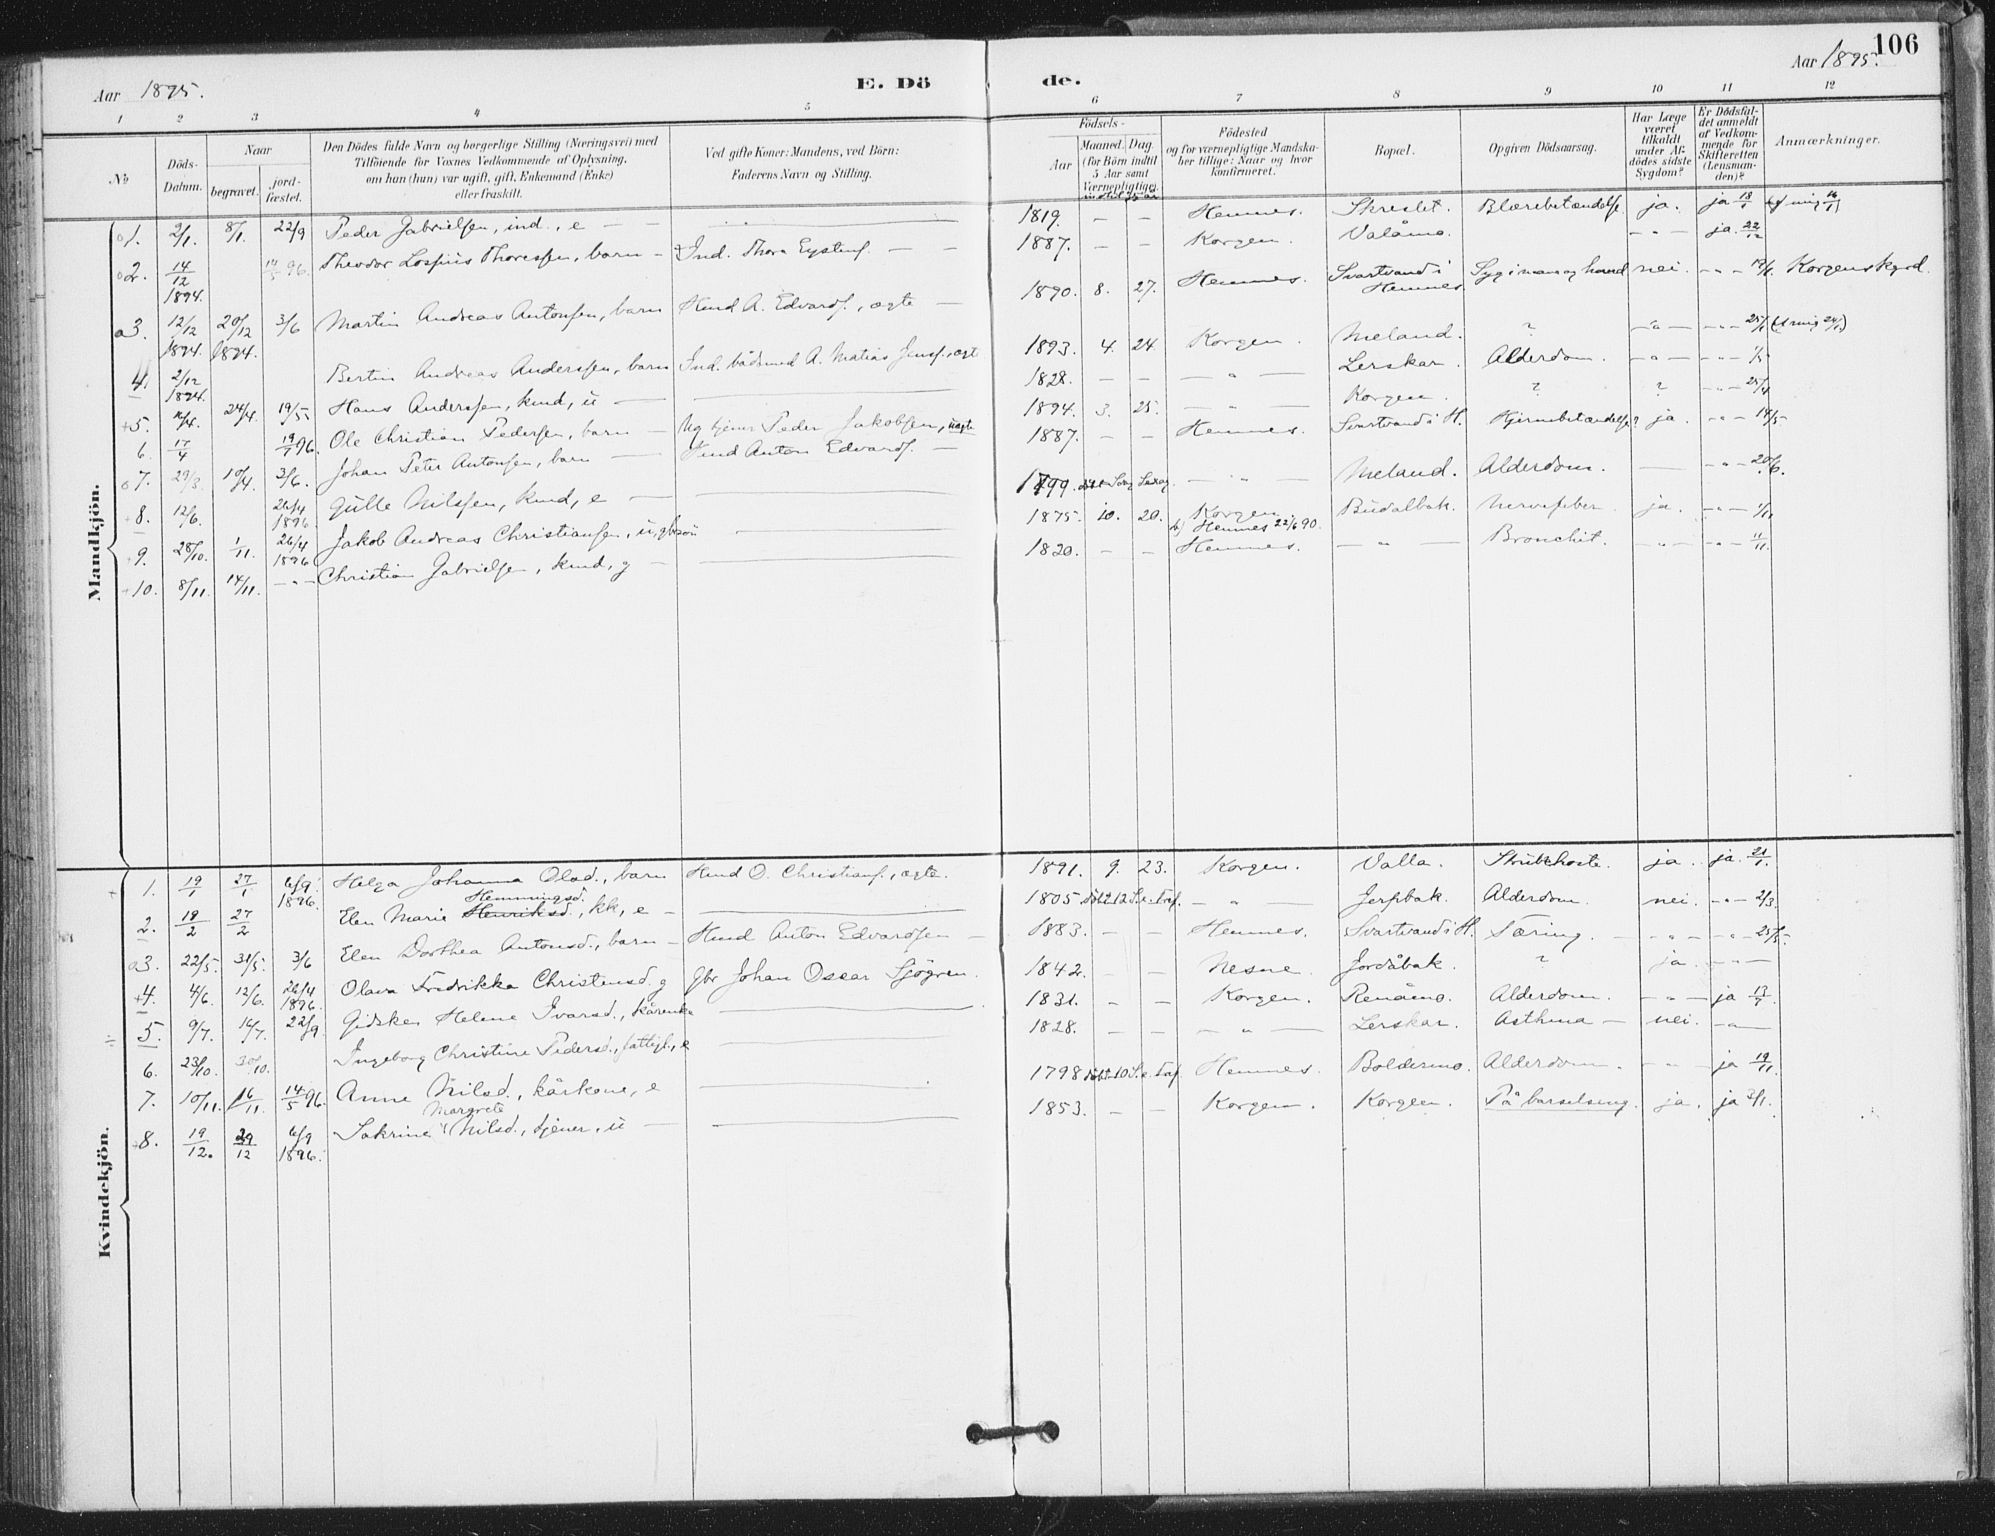 106
Aar 1895. E. Dö de. Aar 1895.
1 2 3 4 5 6 7 8 9 10 11 12
No
Döds-Datum.
Naar
begravet.
jord-fæstet.
Den Dödes fulde Navn og borgerlige Stilling (Næringsvei) med
Tilföiende for Voxnes Vedkommende af Oplysning,
om han (hun) var ugift, gift, Enkemand (Enke)
eller fraskilt.
Ved gifte Koner: Mandens, ved Börn:
Faderens Navn og Stilling.
Födsels-
Aar
Maaned. Dag.
(for Börn indtil
5 Aar samt
Værnepligtige)
Födested
og for værnepligtige Mandska-
ber tillige: Naar og hvor
konfirmeret.
Bopæl.
Opgiven Dödsaarsag.
Har Læge
været
tilkaldt
under Af-
dödes sidste
Sygdom?
Er Dödsfal-
det anmeldt
af Vedkom-
mende for
Skifteretten
(Lensman-
den)?
Anmærkninger.
Mandkjön.
1. 2/1. 8/1. 22/9 Peder Gabrielsen, ind., e — 1819. — — Hemnes. Skreslet. Blærebetændelse ja. ja 18/1
2. 14/12 1894. 14/5 96. Theodor Thoresen, barn — Ind. Thore Eystenf. — — 1887. — — Korgen. Valåmo. — " — ja. 22/12
3. 12/12 1894. 20/12 1894. 3/6 Martin Andreas Antonsen, barn Kmd A. Edvardf., ægte — 1890. 8. 27. Hemnes. Svartvand i Hemnes. nei. — " — Korgens kgrd.
4. 2/12 1894. Bertin Andreas Andersen, barn Ind. A. Matias Jensf., ægte 1893. 4. 24. Korgen. Meland. ? — " — — " — 25/1
5. 24/4. 19/5 Hans Andersen, kmd, u — 1828. — — — " — Lerskar. Alderdom. — " — — " —
6. 17/4 19/7 96. Ole Christian Pedersen, barn — Ug tjener Peder Jakobsen, uægte 1894. 3. 25. — " — Korgen. ? ? — " — 25/4
7. 29/3 10/4. 3/6. Johan Peter Antonsen, barn — Kmd Anton Edvardf. — 1887. — — Hemnes. Svartvand i H. Hjernebetændelse? ja. — " — 14/5
8. 12/6. 26/4 1896 Gulle Nilssen, kmd, e — 1799. — " — Meland. Alderdom. — — " — 20/6.
9. 28/10. 1/11. 26/4 1896 Jakob Andreas Christiansen, u, gbrsøn — 1875. 10. 20. Korgen. Hemnes 22/6 90. Budalbak. Nervefeber. ja. — " — 1/11
10. 8/11. 14/11. — " — Christian Gabrielsen, kmd, g — 1820. — — Hemnes. — " — Bronchit. — " — — " — 11/11.
Kvindekjön.
1. 19/1 27/1 6/9 1896. Helga Johanna Olsd., barn Kmd O. Christianf., ægte. 1891. 9. 23. Korgen. Valla. Strubehoste. ja. ja. 21/1.
Hemmingsd.
2. 18/2 27/2 Elen Marie Henriksd., kk, e — 1805 — " — Jerpbak. Alderdom. nei. — " — 2/3.
3. 22/5. 31/5. 3/6 Elen Dorthea Antonsd., barn — Kmd Anton Edvardsen — 1883. — — Hemnes. Svartvand i H. Tæring. — " — — " — 25/5.
4. 4/6. 12/6. 26/4 1896. Olava Fredrikka Christensd. g gbr Johan Oscar Sjögren. 1842. — — Nesne. Jordåbak. ? ja. — " —
5. 9/7. 16/7. 22/9. Gidsken Helene Ivarsd., kårenke — 1831. — — Korgen. Renåmo. Alderdom. — " — ja 13/7.
6. 23/10. 30/10. Ingeborg Christine Pedersd., fattigl., e — 1828. — — — " — Lerskar. Asthma — nei. — " —
7. 10/11. 16/11. 14/5 96. Anne Nilsd., kårkone, e — 1798 Hemnes. Boldermo. Alderdom. — " — ja 19/11.
Margrete
8. 19/12. 29/12 6/9 1896. Sakrine Nilsd., tjener, u — 1853. — — Korgen. Korgen. På barselseng. ja. ja 2/1.